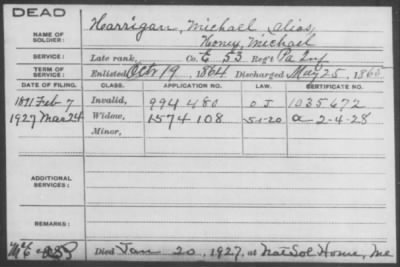 DEAD
NAME OF SOLDIER: Harrigan, Michael alias,
Horney, Michael
SERVICE: Late rank, Co. E 53 Reg't Pa Inf
TERM OF SERVICE: Enlisted Octr 19, 1864 Discharged May 25, 1865
DATE OF FILING. CLASS. APPLICATION NO. LAW. CERTIFICATE NO.
1891 Feb 7 Invalid, 994 480 O J 1035672
1927 Mar 24 Widow, 1574 108 5-1-20 a 2-4-28
Minor,
ADDITIONAL SERVICES:
REMARKS:
Died Jan 20, 1927, at Nat Sol Home, Me